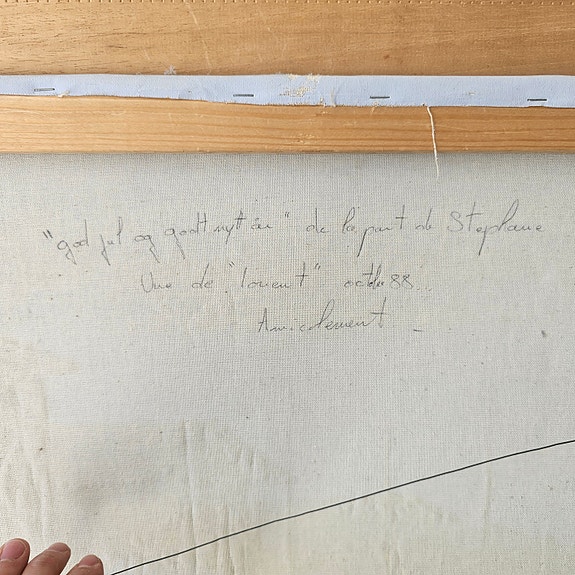 "god jul og godt nytt år" de la part de Stephane
Vue de "lorient" octobre 88.
Amicalement